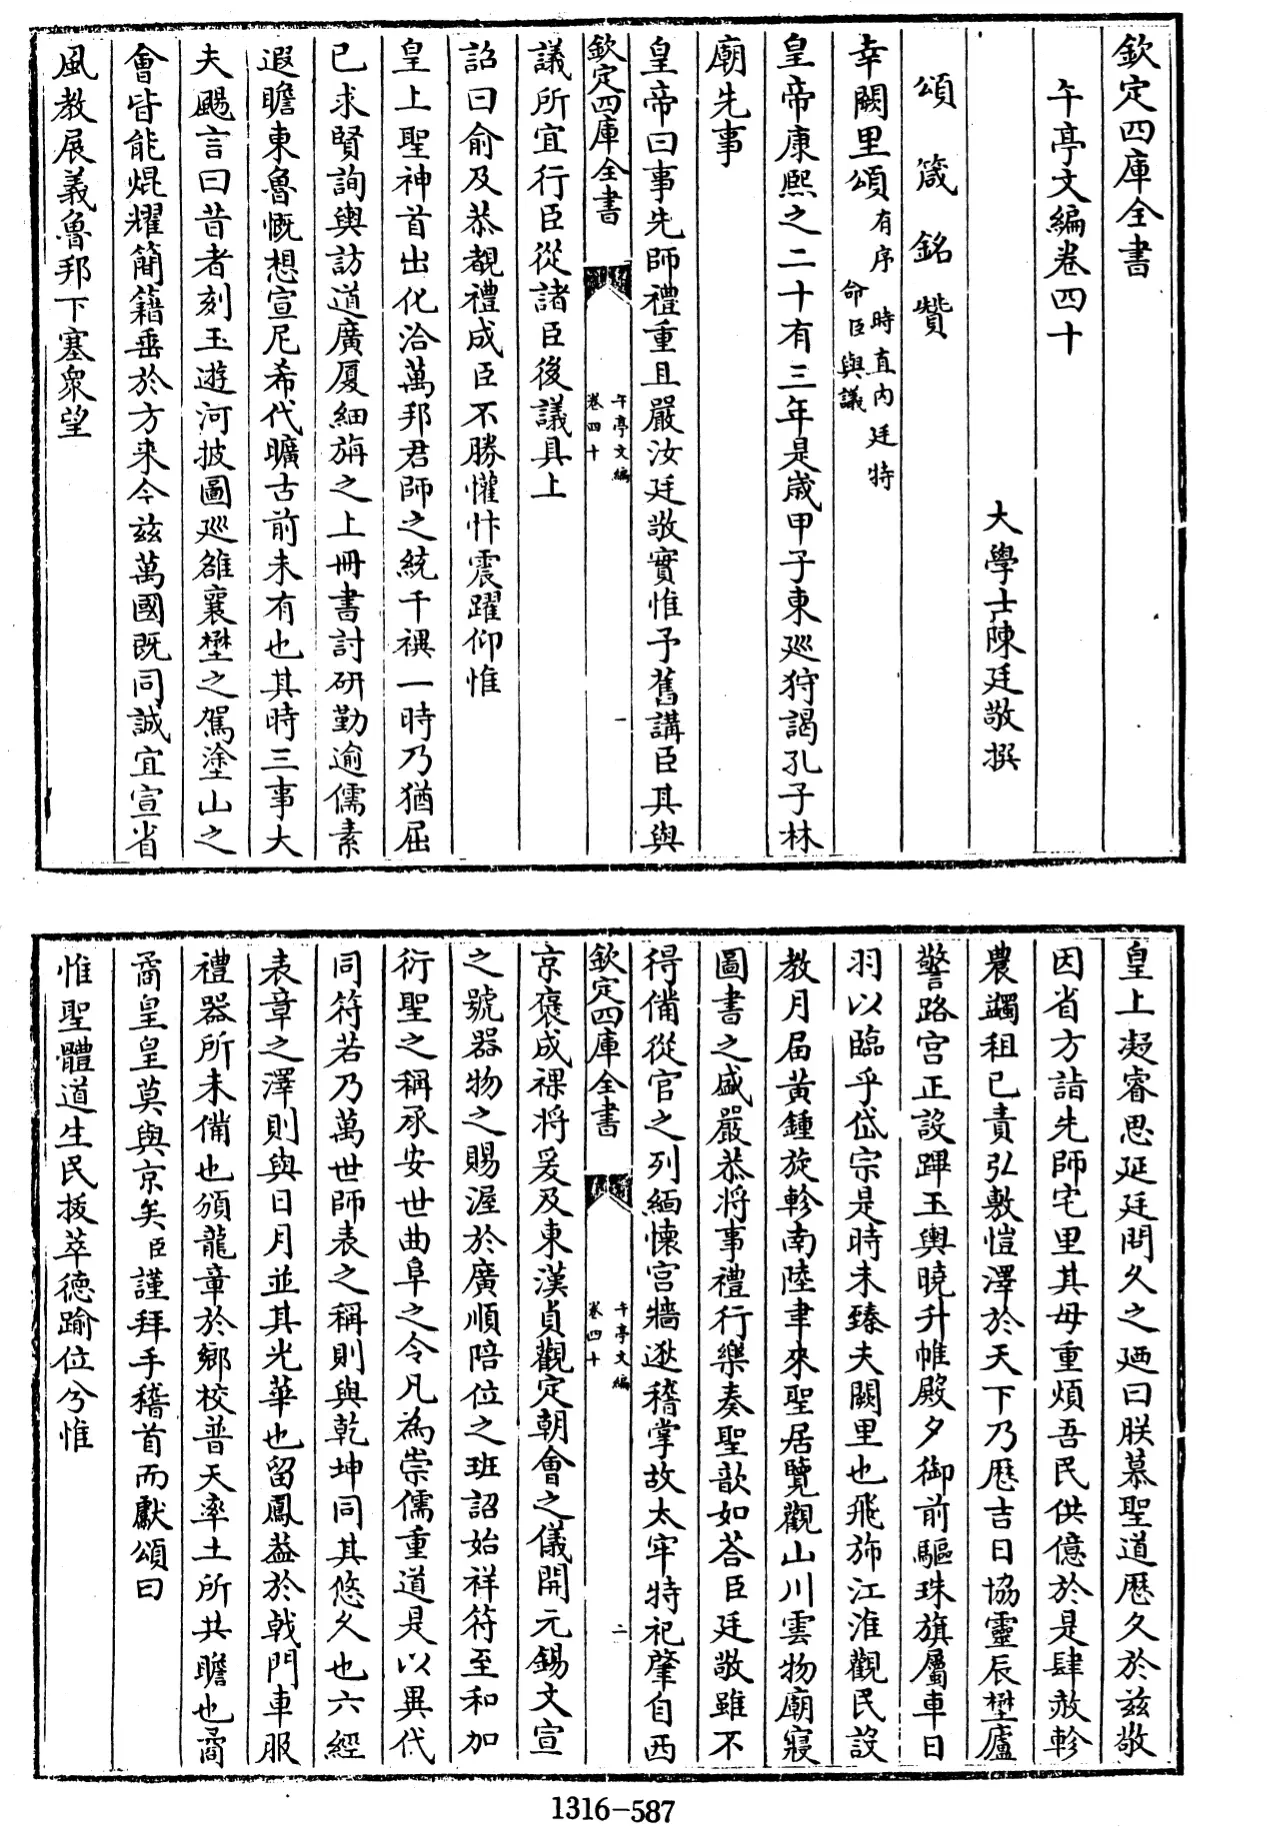 欽定四庫全書
午亭文編卷四十
大學士陳廷敬撰
頌 箴 銘 贊
幸闕里頌有序 時直内廷特命臣與議
皇帝康熙之二十有三年是歲甲子東廵狩謁孔子林
廟先事
皇帝曰事先師禮重且嚴汝廷敬實惟予舊講臣其與
欽定四庫全書
午亭文編
卷四十
一
議所宜行臣從諸臣後議具上
詔曰俞及恭覩禮成臣不勝懽忭震躍仰惟
皇上聖神首出化洽萬邦君師之統千禩一時乃猶屈
已求賢詢輿訪道廣厦細旃之上冊書討研勤逾儒素
遐瞻東魯慨想宣尼希代曠古前未有也其時三事大
夫颺言曰昔者刻玉遊河披圖廵雒襄壄之駕塗山之
會皆能焜耀簡籍垂於方來今兹萬國既同誠宜宣省
風教展義魯邦下塞衆望
皇上凝睿思延廷問久之廼曰朕慕聖道厯久於兹敬
因省方詣先師宅里其毋重煩吾民供億於是肆赦軫
農蠲租已責弘敷愷澤於天下乃厯吉日協靈辰壄廬
警路宫正設蹕玉輿曉升帷殿夕御前驅珠旗屬車日
羽以臨乎岱宗是時未臻夫闕里也飛斾江淮觀民設
教月届黄鍾旋軫南陸聿來聖居覽觀山川雲物廟寢
圖書之盛嚴恭將事禮行樂奏聖歆如荅臣廷敬雖不
得備從官之列緬懷宫牆逖稽掌故太牢特祀肇自西
欽定四庫全書
午亭文編
卷四十
二
京褒成祼将爰及東漢貞觀定朝會之儀開元錫文宣
之號器物之賜渥於廣順陪位之班詔始祥符至和加
衍聖之稱承安世曲阜之令凡為崇儒重道是以異代
同符若乃萬世師表之稱則與乾坤同其悠久也六經
表章之澤則與日月並其光華也留鳳葢於戟門車服
禮器所未備也頒龍章於鄉校普天率土所共瞻也矞
矞皇皇莫與京矣臣謹拜手稽首而獻頌曰
惟聖體道生民拔萃德踰位兮惟
1316-587